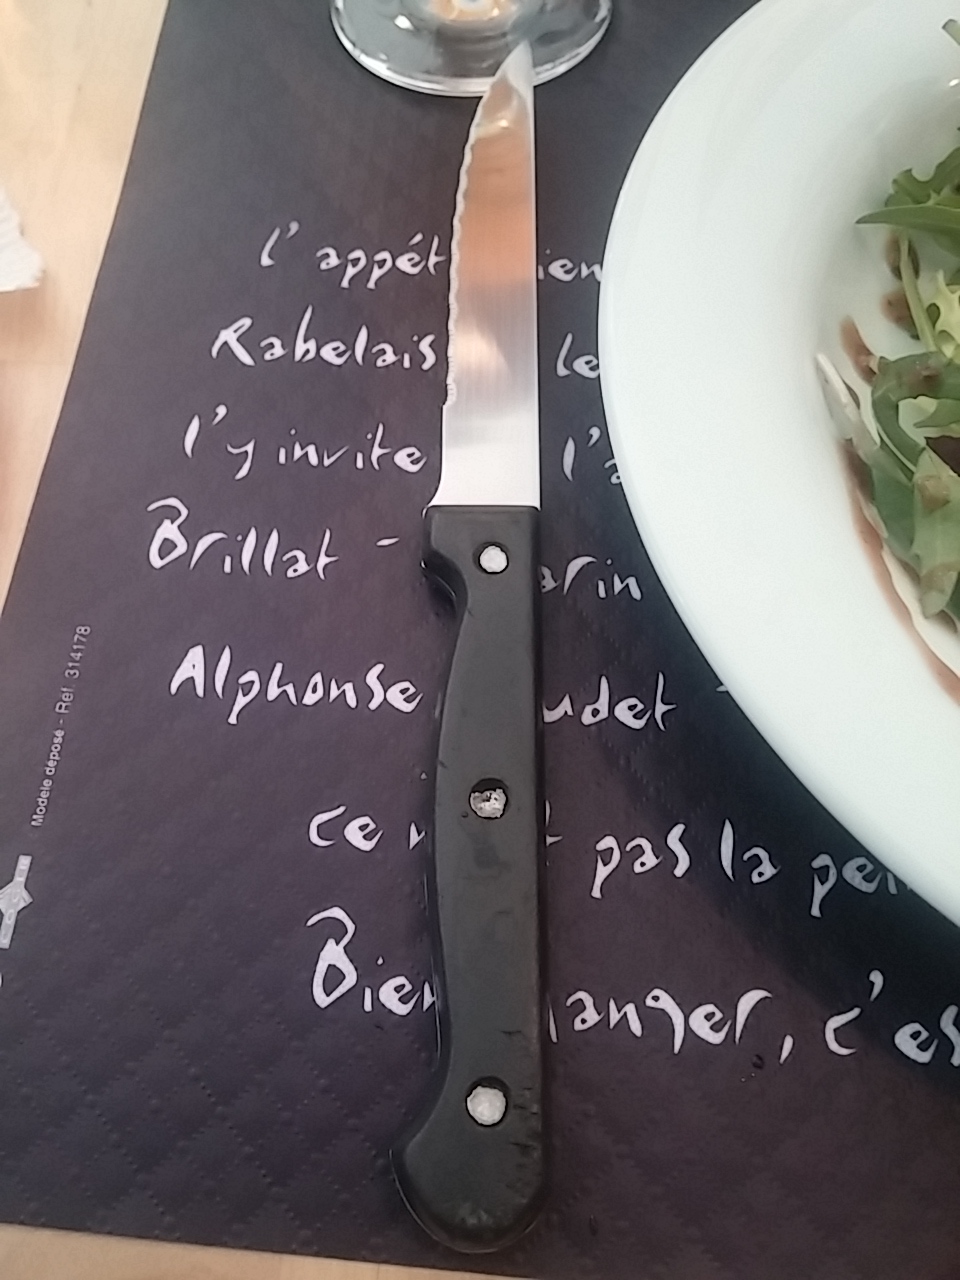 l'appét ien
Rabelais le
l'y invite l'a
Brillat - arin
Alphonse udet
ce pas la pei
Bien anger, c'es
Modèle déposé - Réf. 314178